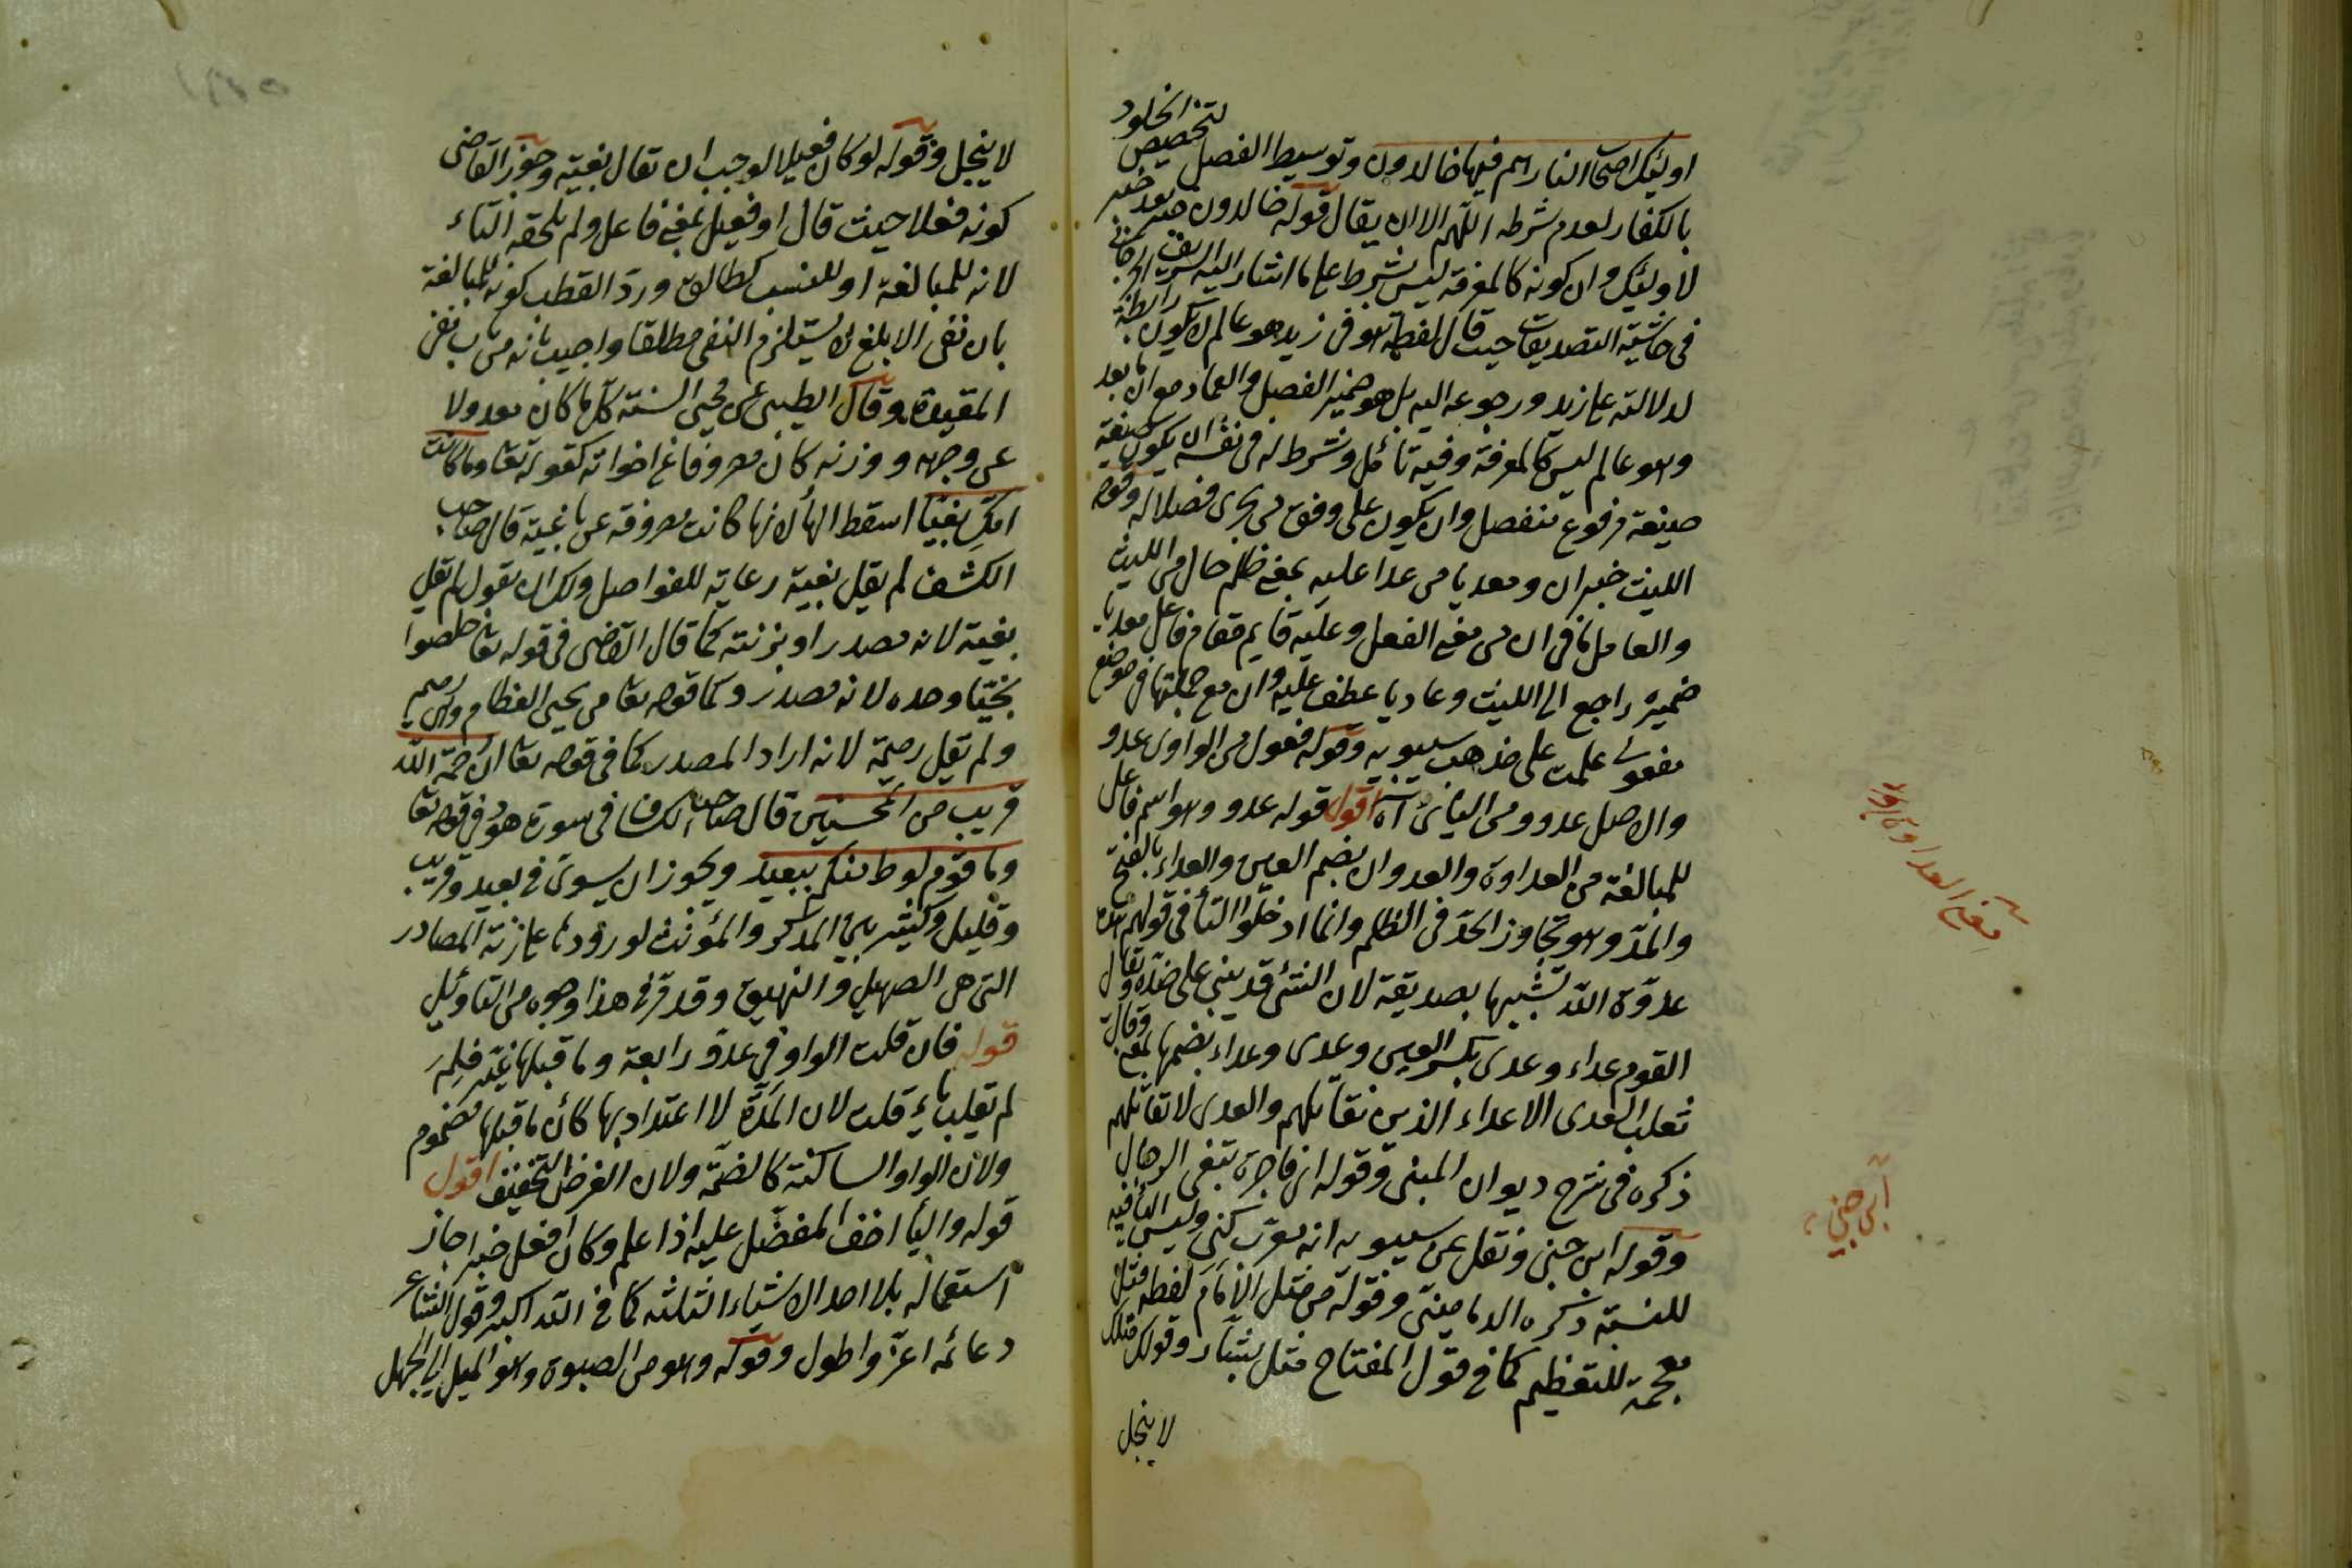 اولئك اصحاب النار هم فيها خالدون وتوسيط الفصل لتخصيص الخلود
بالكفار لعدم شرطه اللهم الا ان يقال قوله خالدون خبر بعد خبر
لاولئك وان كونه كالمعرفة ليس بشرط على ما اشار اليه الشريف الجرجاني
في حاشية التصديقات حيث قال لفظة هو في زيد هو عالم لا يكون رابطة
لدلالته على زيد ورجوعه اليه بل هو ضمير الفصل والعماد مع ان ما بعد
وهو عالم ليس كالمعرفة وفيه تأمل وشرط له في نفسه ان يكون صيغته
صيغة مرفوع منفصل وان يكون على وفق من يجرى فصلا له وقوله
الليث خبر ان ومعديا من عدا عليه بمعنى ظلم حال من الليث
والعامل ما في ان من معنى الفعل وعليه قايم مقام فاعل معديا
ضميره راجع الى الليث وعاديا عطف عليه وان مع جملتها في موضع
مفعولي علمت على مذهب سيبويه وقوله فعول من الواوى عدو
والاصل عدوو ومن اليائى آه اقول قوله عدو وهو اسم فاعل
للمبالغة من العداوة والعدوان بضم العين والعداء بالفتح
والمد وهو تجاوز الحد في الظلم وانما ادخلوا التأ في قولهم هذه
عدوة الله تشبيها بصديقة لان الشئ قد يبنى على ضده ويقال
القوم عداء وعدى بكسر العين وعدى وعداء بضمها بمعنى وقال
ثعلب العدى الاعداء الذين نقاتلهم والعدى لا تقاتلهم
ذكره في شرح ديوان المبنى وقوله اى فاجرة تبغى الرجال
وقوله ابن جنى ونقل عن سيبويه انه معرب كنى وليس اليأ فيه
للنسبة ذكره الدمامينى وقوله من مثل الامام لفظه مثل
معجمة للتعظيم كما في قول المفتاح مثل بشار وقولك مثلك
لا يبخل
معنى العداوة
ابن جنى
لا يبخل وقوله لو كان فعيلا لوجب ان تقال بغية وجوز القاضى
كونه فعلا حيث قال او فعيل بمعنى فاعل ولم تلحقه التاء
لانه للمبالغة او للنسب كطالق ورد القطب كونه للمبالغة
بان نفى الابلغ لا يستلزم النفى مطلقا واجيب بانه من باب نفى
المقيد وقال الطيبى عن محيى السنة كل ما كان معدولا
عن وجهه ووزنه كان مصروفا عن اخواته كقوله تعا وما كانت
امك بغيا اسقط الهأ لانها كانت مصروفة عن باغية قال صاحب
الكشف لم يقل بغية رعاية للفواصل ولك ان تقول لم يقل
بغية لانه مصدر او بزنته كما قال القاضى في قوله تعا خلصوا
نجيا وحده لانه مصدر وكما قوله تعا من يحيى العظام وهى رميم
ولم يقل رميمة لانه اراد المصدر كما في قوله تعا ان رحمة الله
قريب من المحسنين قال صاحب الكشاف في سورة هود في قوله تعا
وما قوم لوط منكم ببعيد ويجوز ان يسوى في بعيد وقريب
وقليل وكثير بين المذكر والمؤنث لورودها على زنة المصادر
التى هى الصهيل والنهيق وقد قر في هذا وجوه من التأويل
قوله فان قلت الواو في عدو رابعة وما قبلها غير ضمة فلم
لم تقلب ياء قلت لان المدة لا اعتداد بها كأن ما قبلها مضموم
ولان الواو الساكنة كالضمة ولان الغرض التخفيف اقول
قوله واليأ اخف المفضل عليه اذا علم وكان افعل خبرا جاز
استعماله بلا احد الاشياء الثلثه كما في الله اكبر وقول الشاعر
دعائمه اعز واطول وقوله وهو من الصبوة وهو الميل الى الجهل